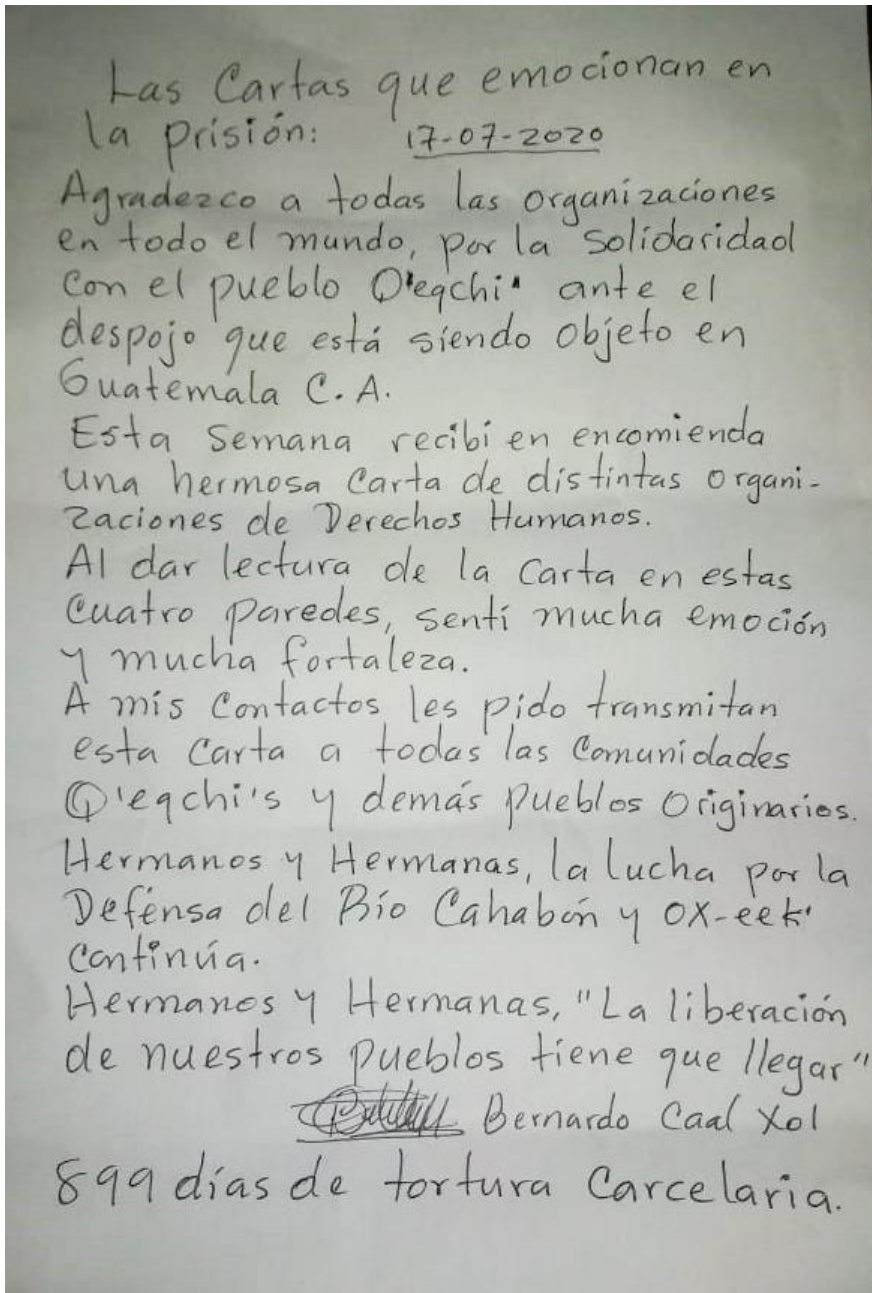 Las Cartas que emocionan en
la prisión: 17-07-2020
Agradezco a todas las organizaciones
en todo el mundo, por la solidaridad
con el pueblo Q'eqchi' ante el
despojo que está siendo objeto en
Guatemala C.A.
Esta semana recibí en encomienda
una hermosa carta de distintas organi-
zaciones de Derechos Humanos.
Al dar lectura de la carta en estas
cuatro paredes, sentí mucha emoción
y mucha fortaleza.
A mis contactos les pido transmitan
esta carta a todas las comunidades
Q'eqchi's y demás pueblos Originarios.
Hermanos y Hermanas, la lucha por la
Defensa del Río Cahabón y OX-eek'
continúa.
Hermanos y Hermanas, "La liberación
de nuestros pueblos tiene que llegar"
Bernardo Caal Xol
899 días de tortura carcelaria.